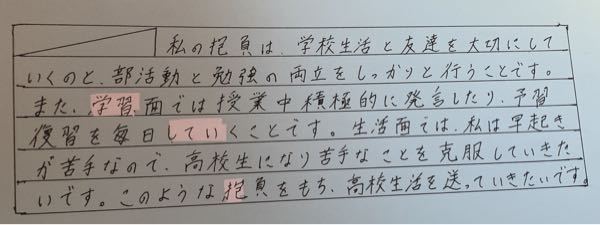 私の抱負は、学校生活と友達を大切にして
いくのと、部活動と勉強の両立をしっかりと行うことです。
また、学習面では授業中積極的に発言したり、予習
復習を毎日していくことです。生活面では、私は早起き
が苦手なので、高校生になり苦手なことを克服していきた
いです。このような抱負をもち、高校生活を送っていきたいです。